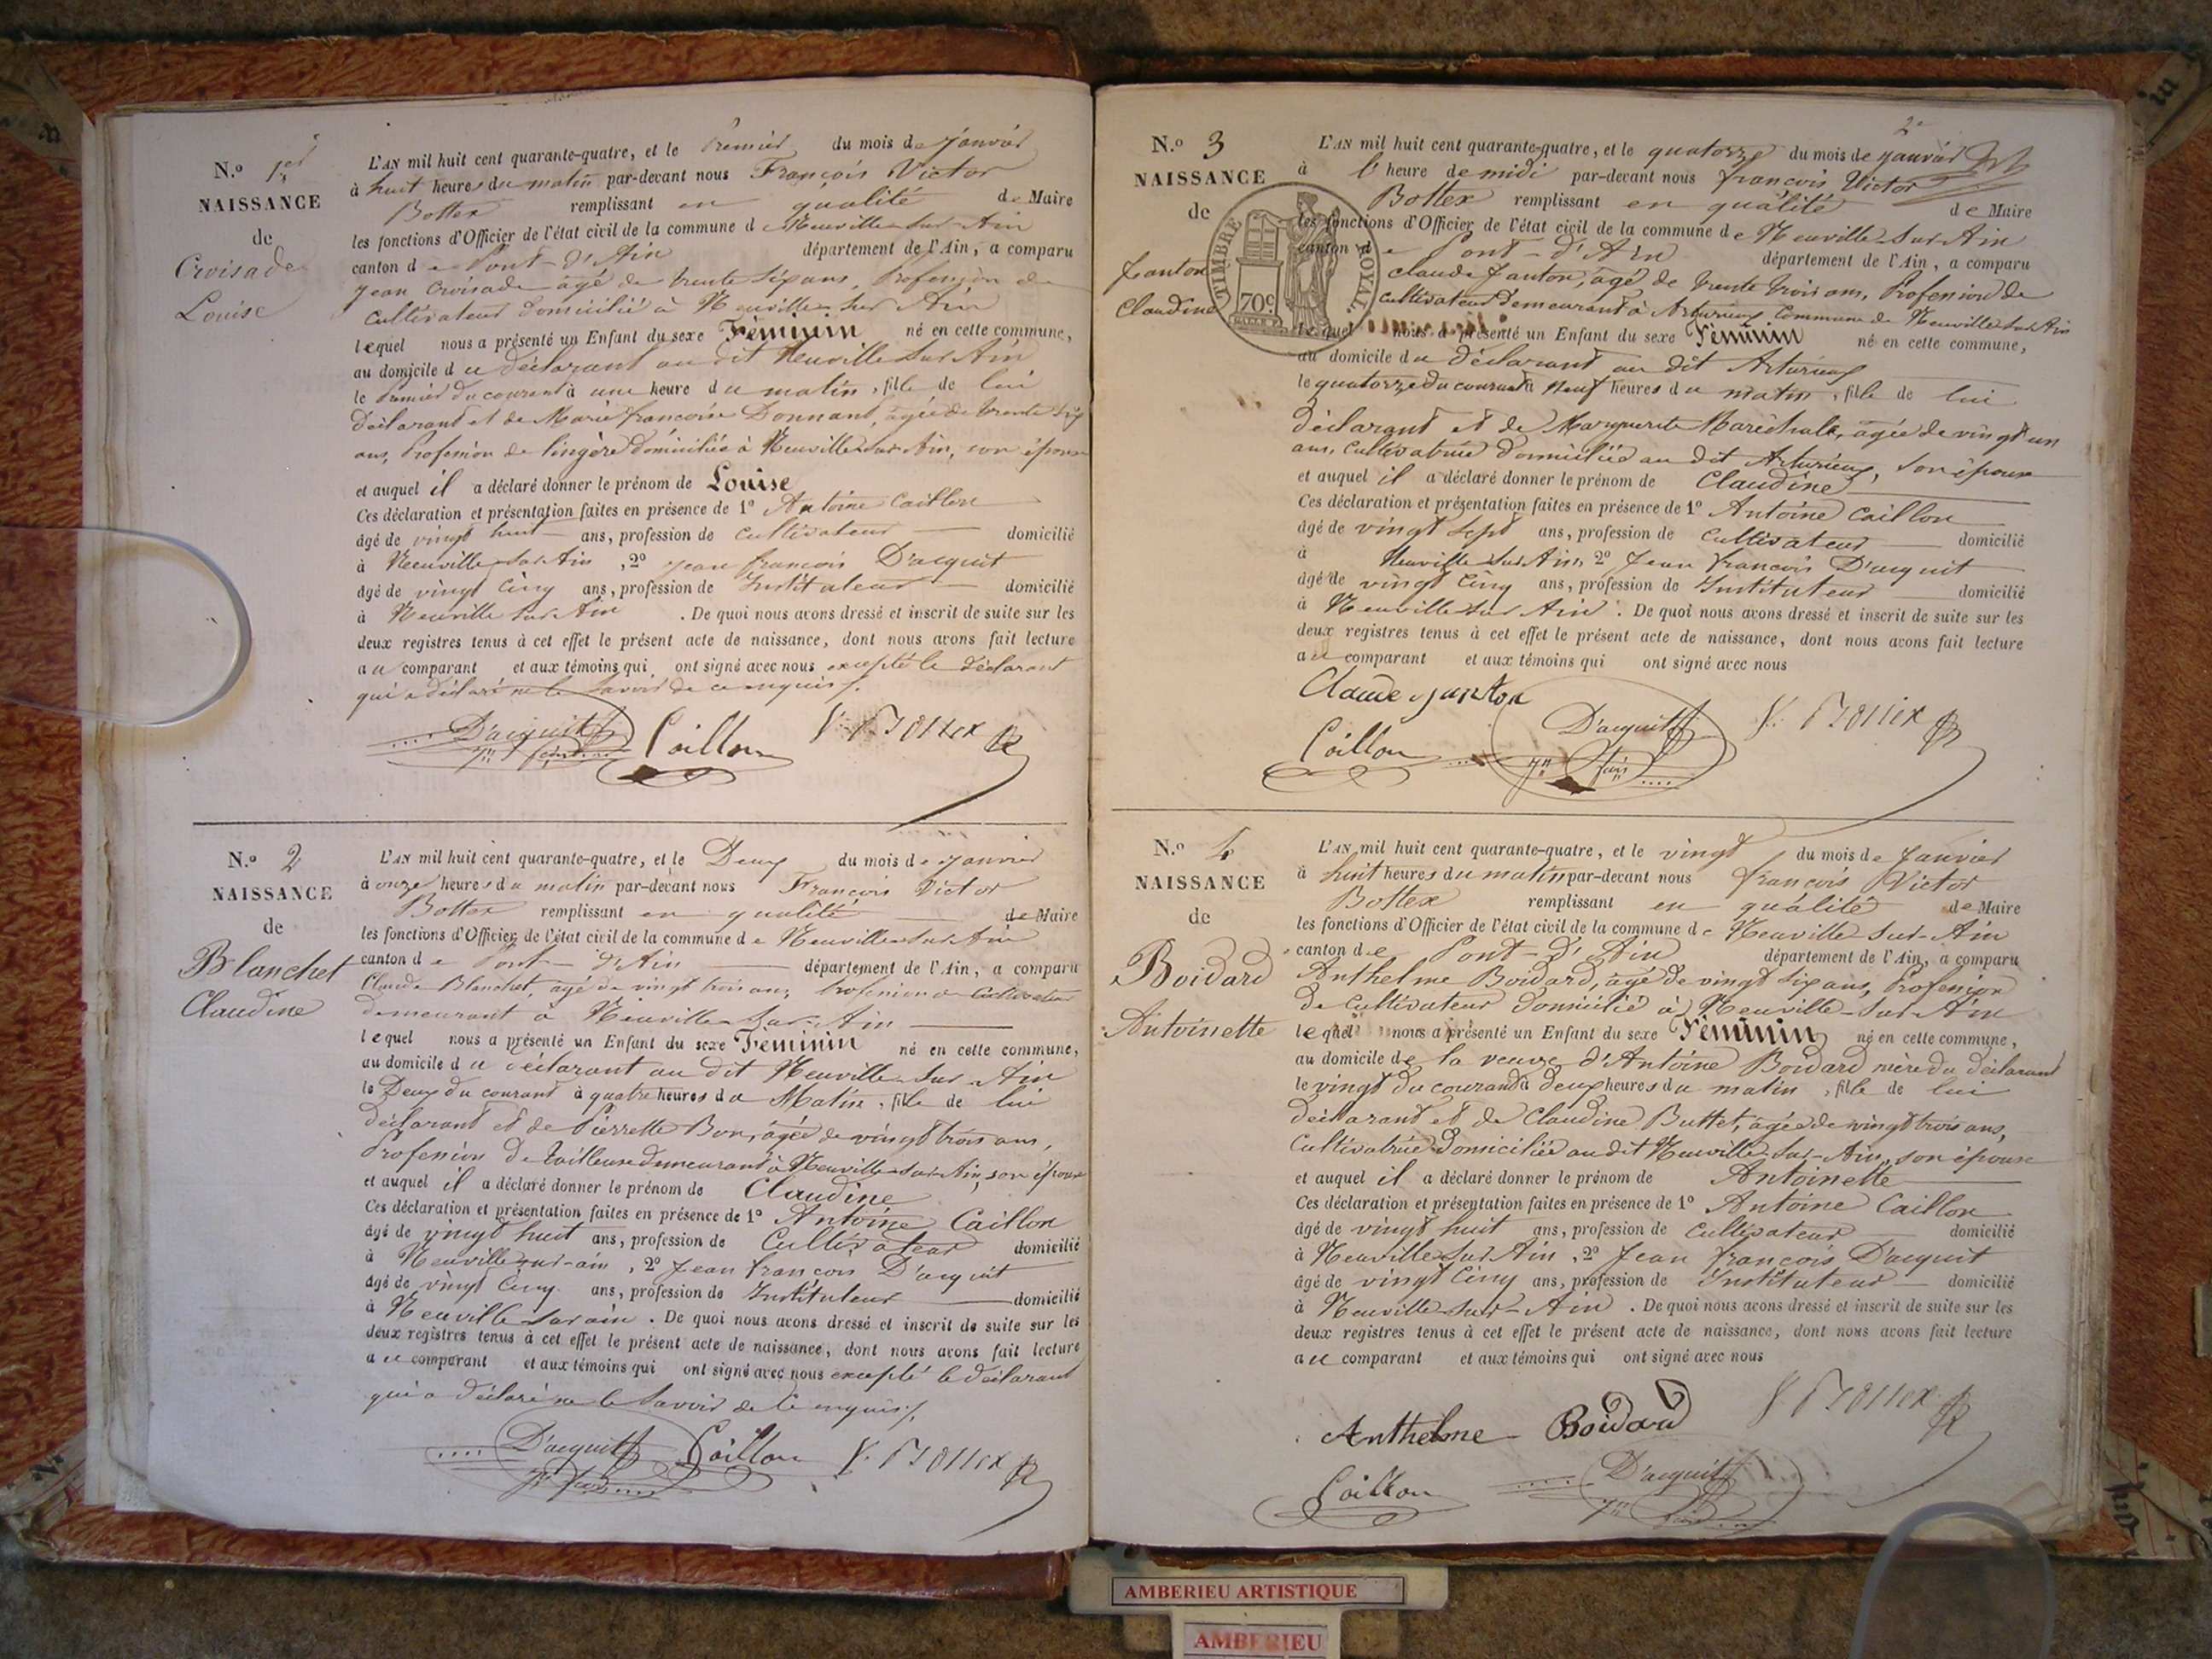 N.º 1er
NAISSANCE
de
Croisade
Louise
L'AN mil huit cent quarante-quatre, et le Premier du mois de Janvier
à huit heures du matin par-devant nous François Victor
Bottex remplissant en qualité de Maire
les fonctions d'Officier de l'état civil de la commune de Neuville sur Ain
canton de Pont-d'Ain département de l'Ain, a comparu
Jean Croisade âgé de trente six ans, Profession de
Cultivateur Domicilié à Neuville sur Ain
lequel nous a présenté un Enfant du sexe Féminin né en cette commune,
au domicile du déclarant au dit Neuville sur Ain
le Premier du courant à une heure du matin, fille de lui
Déclarant et de Marie françoise Donnant, âgée de trente six
ans, Profession de lingère Domiciliée à Neuville sur Ain, son épouse
et auquel il a déclaré donner le prénom de Louise
Ces déclaration et présentation faites en présence de 1º Antoine Caillon
âgé de vingt huit ans, profession de Cultivateur domicilié
à Neuville sur Ain, 2º Jean françois D'acquit
âgé de vingt cinq ans, profession de Instituteur domicilié
à Neuville sur Ain. De quoi nous avons dressé et inscrit de suite sur les
deux registres tenus à cet effet le présent acte de naissance, dont nous avons fait lecture
au comparant et aux témoins qui ont signé avec nous excepté le Déclarant
qui a déclaré ne le savoir de ce enquis.
D'acquit Caillon V. Bottex
Jn fçois
N.º 2
NAISSANCE
de
Blanchet
Claudine
L'AN mil huit cent quarante-quatre, et le Deux du mois de Janvier
à onze heures du matin par-devant nous François Victor
Bottex remplissant en qualité de Maire
les fonctions d'Officier de l'état civil de la commune de Neuville sur Ain
canton de Pont-d'Ain département de l'Ain, a comparu
Claude Blanchet, âgé de vingt trois ans, Profession de Cultivateur
demeurant à Neuville sur Ain
lequel nous a présenté un Enfant du sexe Féminin né en cette commune,
au domicile du déclarant au dit Neuville sur Ain
le Deux du courant à quatre heures du Matin, fille de lui
déclarant et de Pierrette Bon, âgée de vingt trois ans,
Profession De tailleuse demeurant à Neuville sur Ain, son épouse
et auquel il a déclaré donner le prénom de Claudine
Ces déclaration et présentation faites en présence de 1º Antoine Caillon
âgé de vingt huit ans, profession de Cultivateur domicilié
à Neuville sur-ain, 2º Jean françois D'acquit
âgé de vingt cinq ans, profession de Instituteur domicilié
à Neuville sur ain. De quoi nous avons dressé et inscrit de suite sur les
deux registres tenus à cet effet le présent acte de naissance, dont nous avons fait lecture
au comparant et aux témoins qui ont signé avec nous excepté le déclarant
qui a déclaré ne le savoir de ce enquis.
D'acquit Caillon V. Bottex
Jn fçois
2e
N.º 3
NAISSANCE
de
Janton
Claudine
TIMBRE ROYAL
70c.
L'AN mil huit cent quarante-quatre, et le quatorze du mois de janvier
à l' heure de midi par-devant nous françois Victor
Bottex remplissant en qualité de Maire
les fonctions d'Officier de l'état civil de la commune de Neuville sur Ain
canton de Pont-d'Ain département de l'Ain, a comparu
Claude Janton, âgé de trente trois ans, Profession de
cultivateur Demeurant à Arturieux Commune de Neuville sur Ain
lequel nous a présenté un Enfant du sexe Féminin né en cette commune,
au domicile du Déclarant au dit Arturieux
le quatorze du courant à Neuf heures du matin, fille de lui
déclarant et de Marguerite Maréchale, âgée de vingt un
ans, Cultivatrice Domiciliée au dit Arturieux, son épouse
et auquel il a déclaré donner le prénom de Claudine
Ces déclaration et présentation faites en présence de 1º Antoine Caillon
âgé de vingt sept ans, profession de Cultivateur domicilié
à Neuville sur Ain, 2º Jean françois D'acquit
âgé de vingt cinq ans, profession de Instituteur domicilié
à Neuville sur Ain. De quoi nous avons dressé et inscrit de suite sur les
deux registres tenus à cet effet le présent acte de naissance, dont nous avons fait lecture
au comparant et aux témoins qui ont signé avec nous
Claude janton
D'acquit V. Bottex
Caillon Jn fçois
N.º 4
NAISSANCE
de
Boidard
Antoinette
L'AN mil huit cent quarante-quatre, et le vingt du mois de Janvier
à huit heures du matin par-devant nous françois Victor
Bottex remplissant en qualité de Maire
les fonctions d'Officier de l'état civil de la commune de Neuville-sur-Ain
canton de Pont-d'Ain département de l'Ain, a comparu
Anthelme Boidard, âgé de vingt six ans, Profession
De Cultivateur Domicilié à Neuville-sur-Ain
lequel nous a présenté un Enfant du sexe Féminin né en cette commune,
au domicile de la veuve d'Antoine Boidard mère du déclarant
le vingt du courant à deux heures du matin, fille de lui
déclarant et de Claudine Buttet, âgée de vingt trois ans,
Cultivatrice Domiciliée au dit Neuville-sur-Ain, son épouse
et auquel il a déclaré donner le prénom de Antoinette
Ces déclaration et présentation faites en présence de 1º Antoine Caillon
âgé de vingt huit ans, profession de Cultivateur domicilié
à Neuville sur Ain, 2º Jean françois D'acquit
âgé de vingt cinq ans, profession de Instituteur domicilié
à Neuville-sur-Ain. De quoi nous avons dressé et inscrit de suite sur les
deux registres tenus à cet effet le présent acte de naissance, dont nous avons fait lecture
au comparant et aux témoins qui ont signé avec nous
Anthelme Boidard V. Bottex
Caillon D'acquit
Jn
AMBERIEU ARTISTIQUE
AMBERIEU